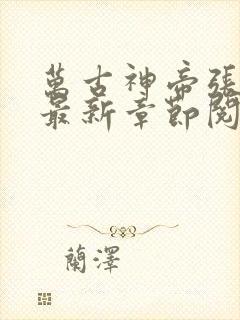 萬古神帝張
最新章節閱
蘭澤